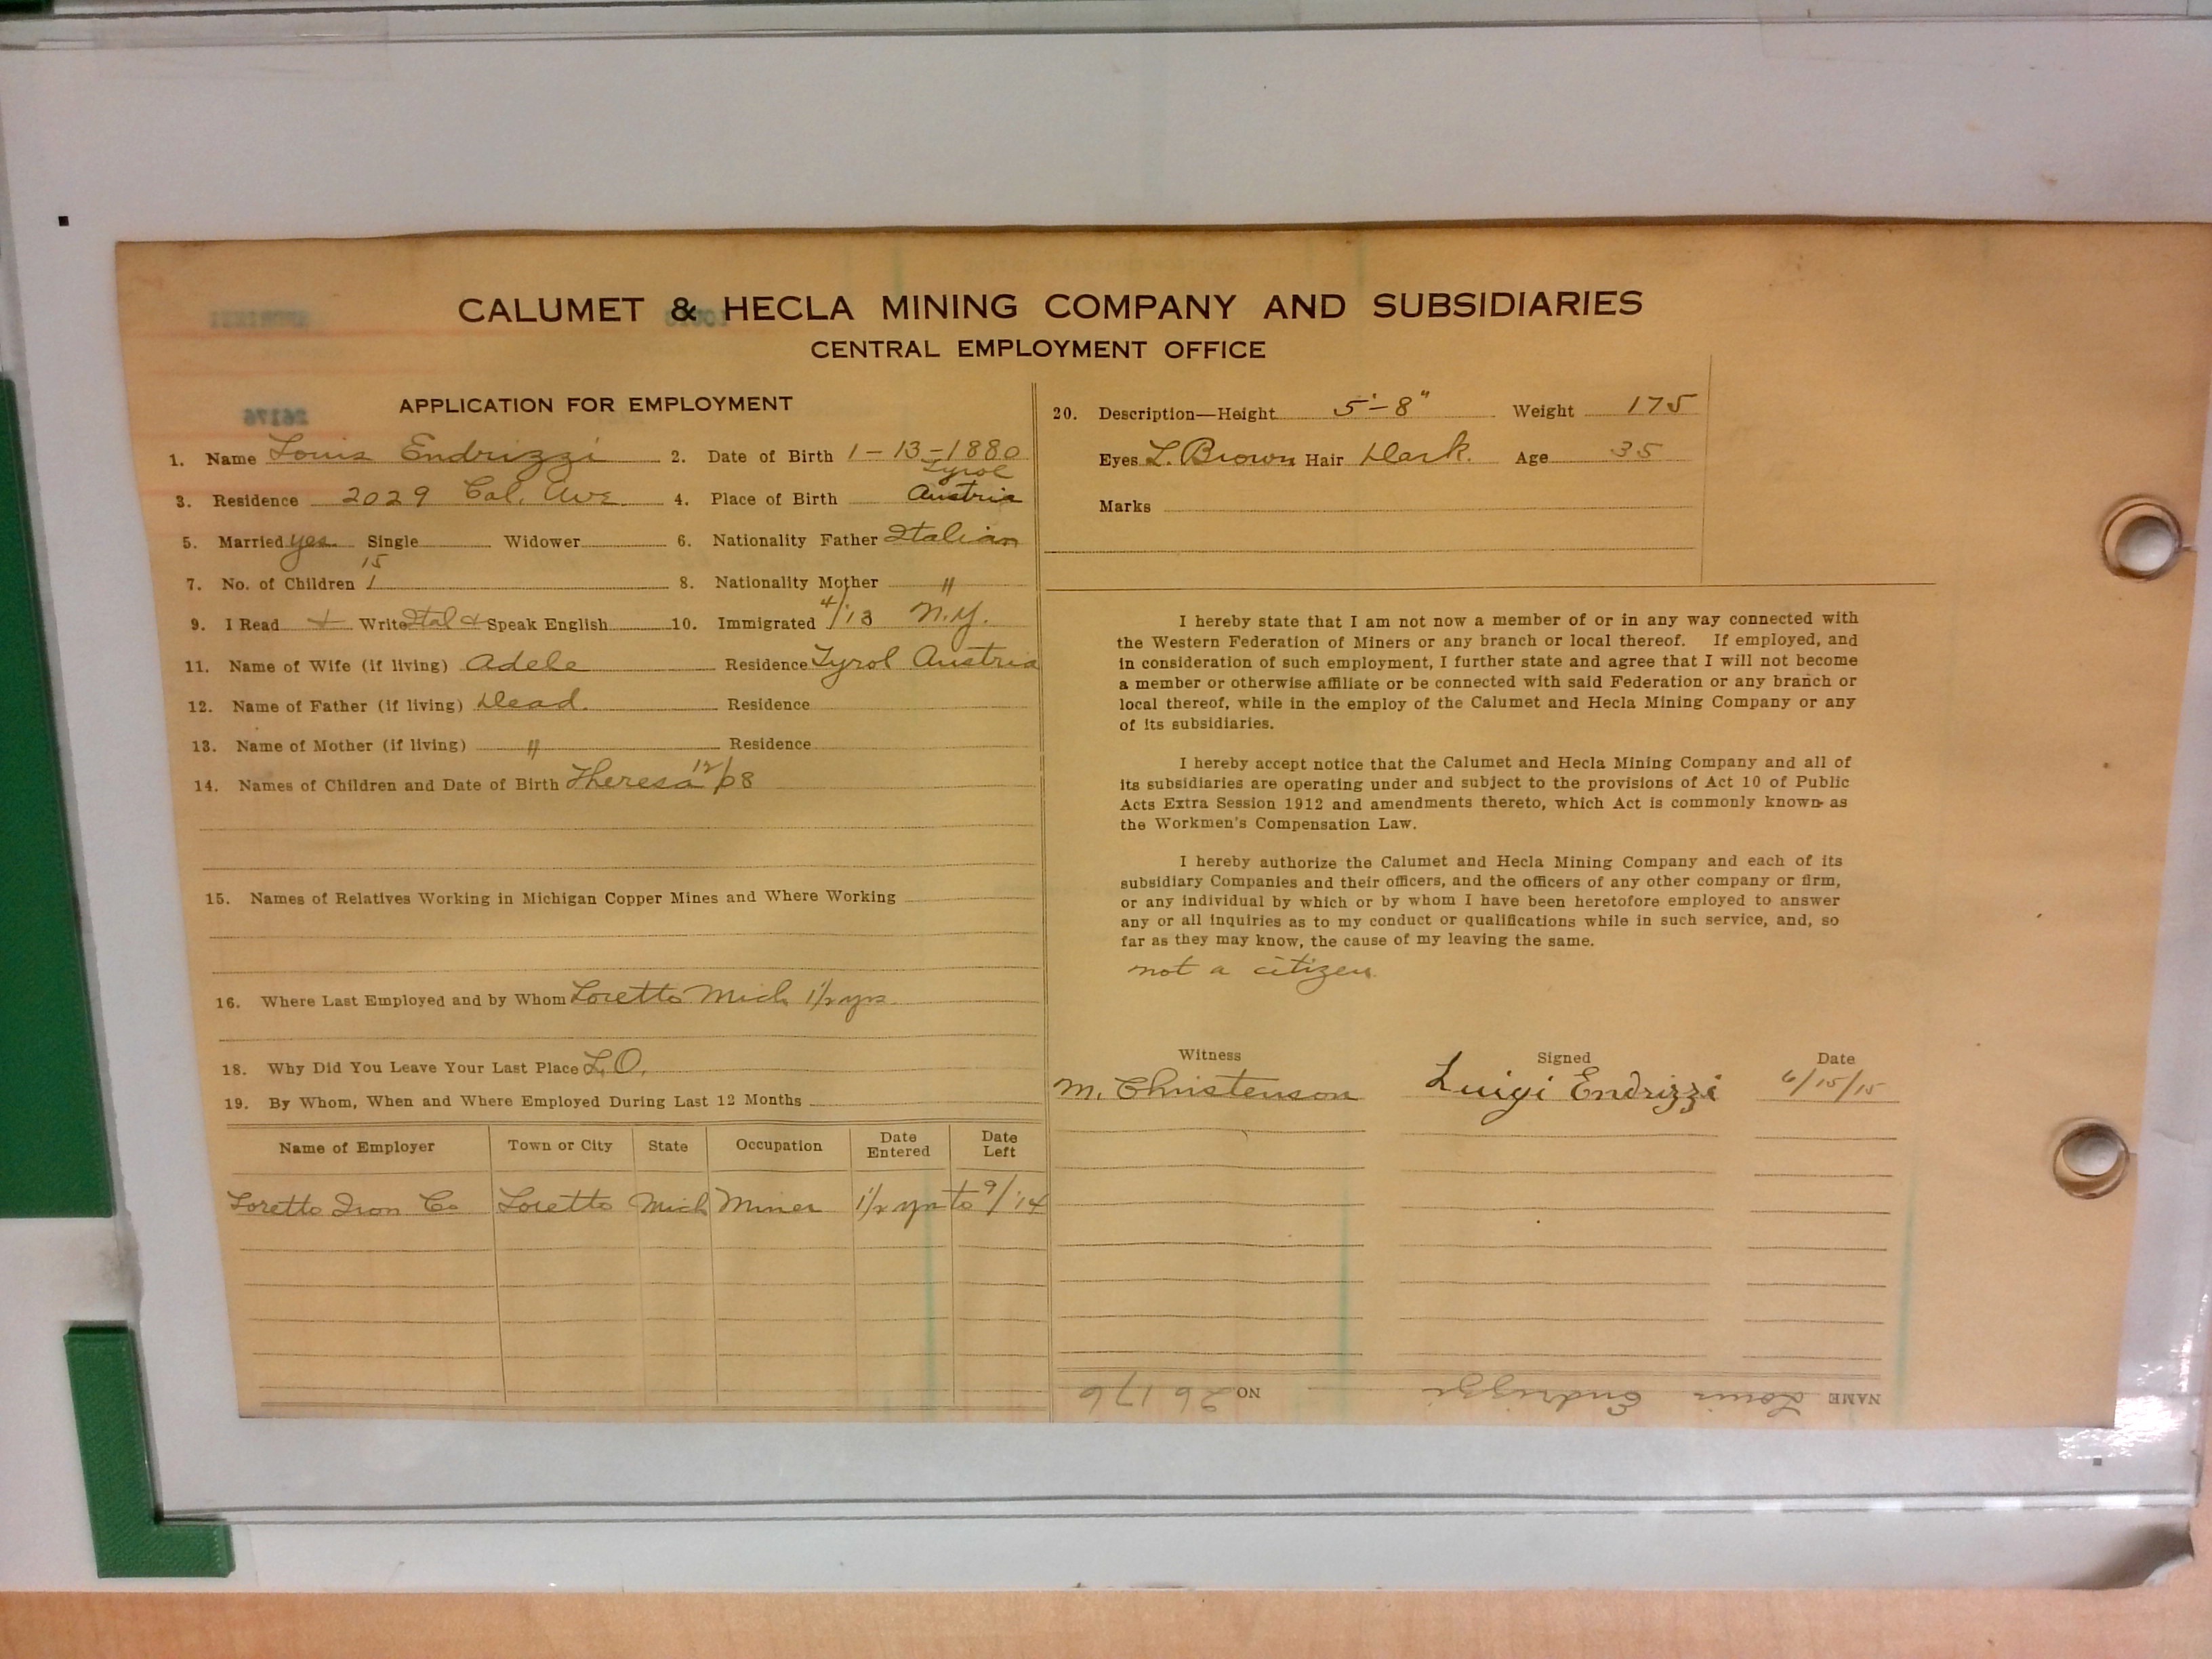 CALUMET & HECLA MINING COMPANY AND SUBSIDIARIES
CENTRAL EMPLOYMENT OFFICE
APPLICATION FOR EMPLOYMENT
26176
1. Name Louis Endrizzi 2. Date of Birth 1-13-1880
Tyrol
3. Residence 2029 Cal. Ave. 4. Place of Birth Austria
5. Married yes Single Widower 6. Nationality Father Italian
15
7. No. of Children 1 8. Nationality Mother "
9. I Read + Write Ital + Speak English 10. Immigrated 4/'13 N.Y.
11. Name of Wife (if living) Adele Residence Tyrol Austria
12. Name of Father (if living) Dead. Residence
13. Name of Mother (if living) " Residence
14. Names of Children and Date of Birth Theresa 12/08
15. Names of Relatives Working in Michigan Copper Mines and Where Working
16. Where Last Employed and by Whom Loretto Mich 1½ yrs
18. Why Did You Leave Your Last Place L.O.
19. By Whom, When and Where Employed During Last 12 Months
Name of Employer Town or City State Occupation Date Entered Date Left
Loretto Iron Co Loretto Mich Miner 1½ yrs to 9/'14
20. Description—Height 5'-8" Weight 175
Eyes L. Brown Hair Dark. Age 35
Marks
I hereby state that I am not now a member of or in any way connected with
the Western Federation of Miners or any branch or local thereof. If employed, and
in consideration of such employment, I further state and agree that I will not become
a member or otherwise affiliate or be connected with said Federation or any branch or
local thereof, while in the employ of the Calumet and Hecla Mining Company or any
of its subsidiaries.
I hereby accept notice that the Calumet and Hecla Mining Company and all of
its subsidiaries are operating under and subject to the provisions of Act 10 of Public
Acts Extra Session 1912 and amendments thereto, which Act is commonly known as
the Workmen's Compensation Law.
I hereby authorize the Calumet and Hecla Mining Company and each of its
subsidiary Companies and their officers, and the officers of any other company or firm,
or any individual by which or by whom I have been heretofore employed to answer
any or all inquiries as to my conduct or qualifications while in such service, and, so
far as they may know, the cause of my leaving the same.
not a citizen
Witness Signed Date
M. Christenson Luigi Endrizzi 6/15/15
NAME Louis Endrizzi NO 26176